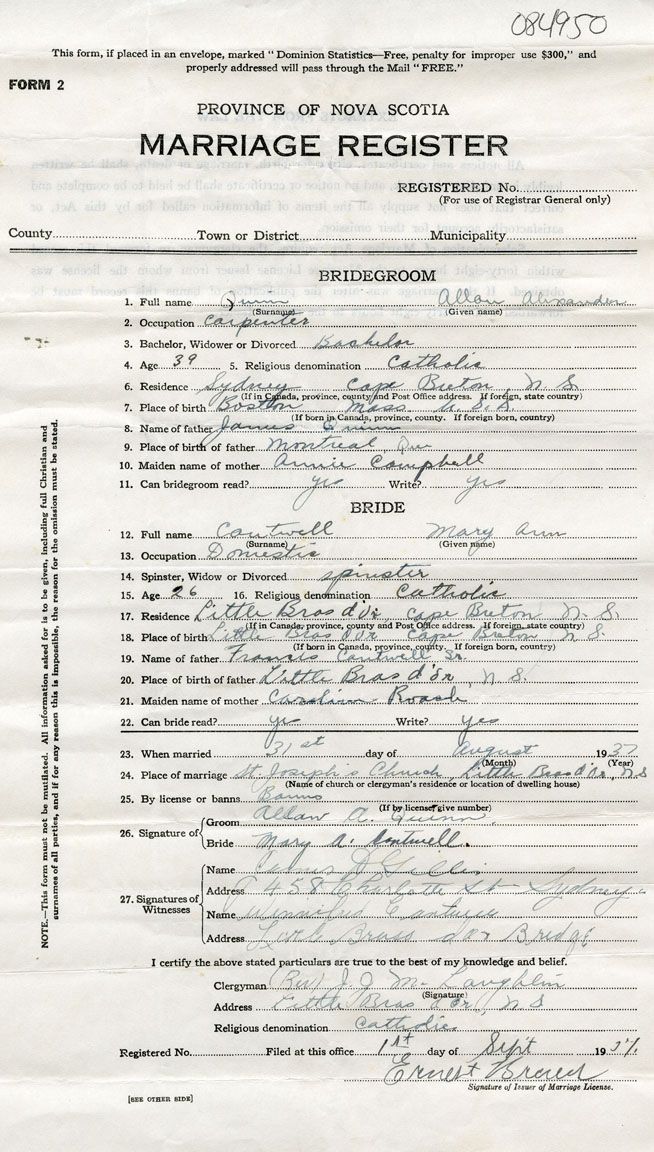 084950
This form, if placed in an envelope, marked "Dominion Statistics—Free, penalty for improper use $300," and
properly addressed will pass through the Mail "FREE."
FORM 2
PROVINCE OF NOVA SCOTIA
MARRIAGE REGISTER
REGISTERED No.
(For use of Registrar General only)
County Town or District Municipality
BRIDEGROOM
1. Full name Quinn Allan Alexander
(Surname) (Given name)
2. Occupation Carpenter
3. Bachelor, Widower or Divorced Bachelor
4. Age 39 5. Religious denomination Catholic
6. Residence Sydney Cape Breton, N. S.
(If in Canada, province, county and Post Office address. If foreign, state country)
7. Place of birth Boston Mass U. S. S.
(If born in Canada, province, county. If foreign born, country)
8. Name of father James Quinn
9. Place of birth of father Montreal Que
10. Maiden name of mother Annie Campbell
11. Can bridegroom read? yes Write? yes
BRIDE
12. Full name Cantwell Mary Ann
(Surname) (Given name)
13. Occupation Domestic
14. Spinster, Widow or Divorced spinster
15. Age 26 16. Religious denomination Catholic
17. Residence Little Bras d'Or, Cape Breton N. S.
(If in Canada, province, county and Post Office address. If foreign, state country)
18. Place of birth Little Bras d'Or Cape Breton N. S.
(If born in Canada, province, county. If foreign born, country)
19. Name of father Francis Cantwell Sr.
20. Place of birth of father Little Bras d'Or, N. S.
21. Maiden name of mother Caroline Roach
22. Can bride read? yes Write? yes
23. When married 31st day of August 1937
(Month) (Year)
24. Place of marriage St Joseph's Church, Little Bras d'Or, N S
(Name of church or clergyman's residence or location of dwelling house)
25. By license or banns Banns
(If by license, give number)
26. Signature of
Groom Allan A. Quinn
Bride Mary A. Cantwell.
27. Signatures of Witnesses
Name D Gillis
Address 458 Charlotte St Sydney
Name
Address Little Brass d'or Bridge
I certify the above stated particulars are true to the best of my knowledge and belief.
Clergyman (Rev) J. J. McLaughlin
(Signature)
Address Little Bras d'Or, N S
Religious denomination Catholic
Registered No. Filed at this office 1st day of Sept 1937.
Ernest
Signature of Issuer of Marriage License.
[SEE OTHER SIDE]
NOTE.—This form must not be mutilated. All information asked for is to be given, including full Christian and
surnames of all parties, and if for any reason this is impossible, the reason for the omission must be stated.